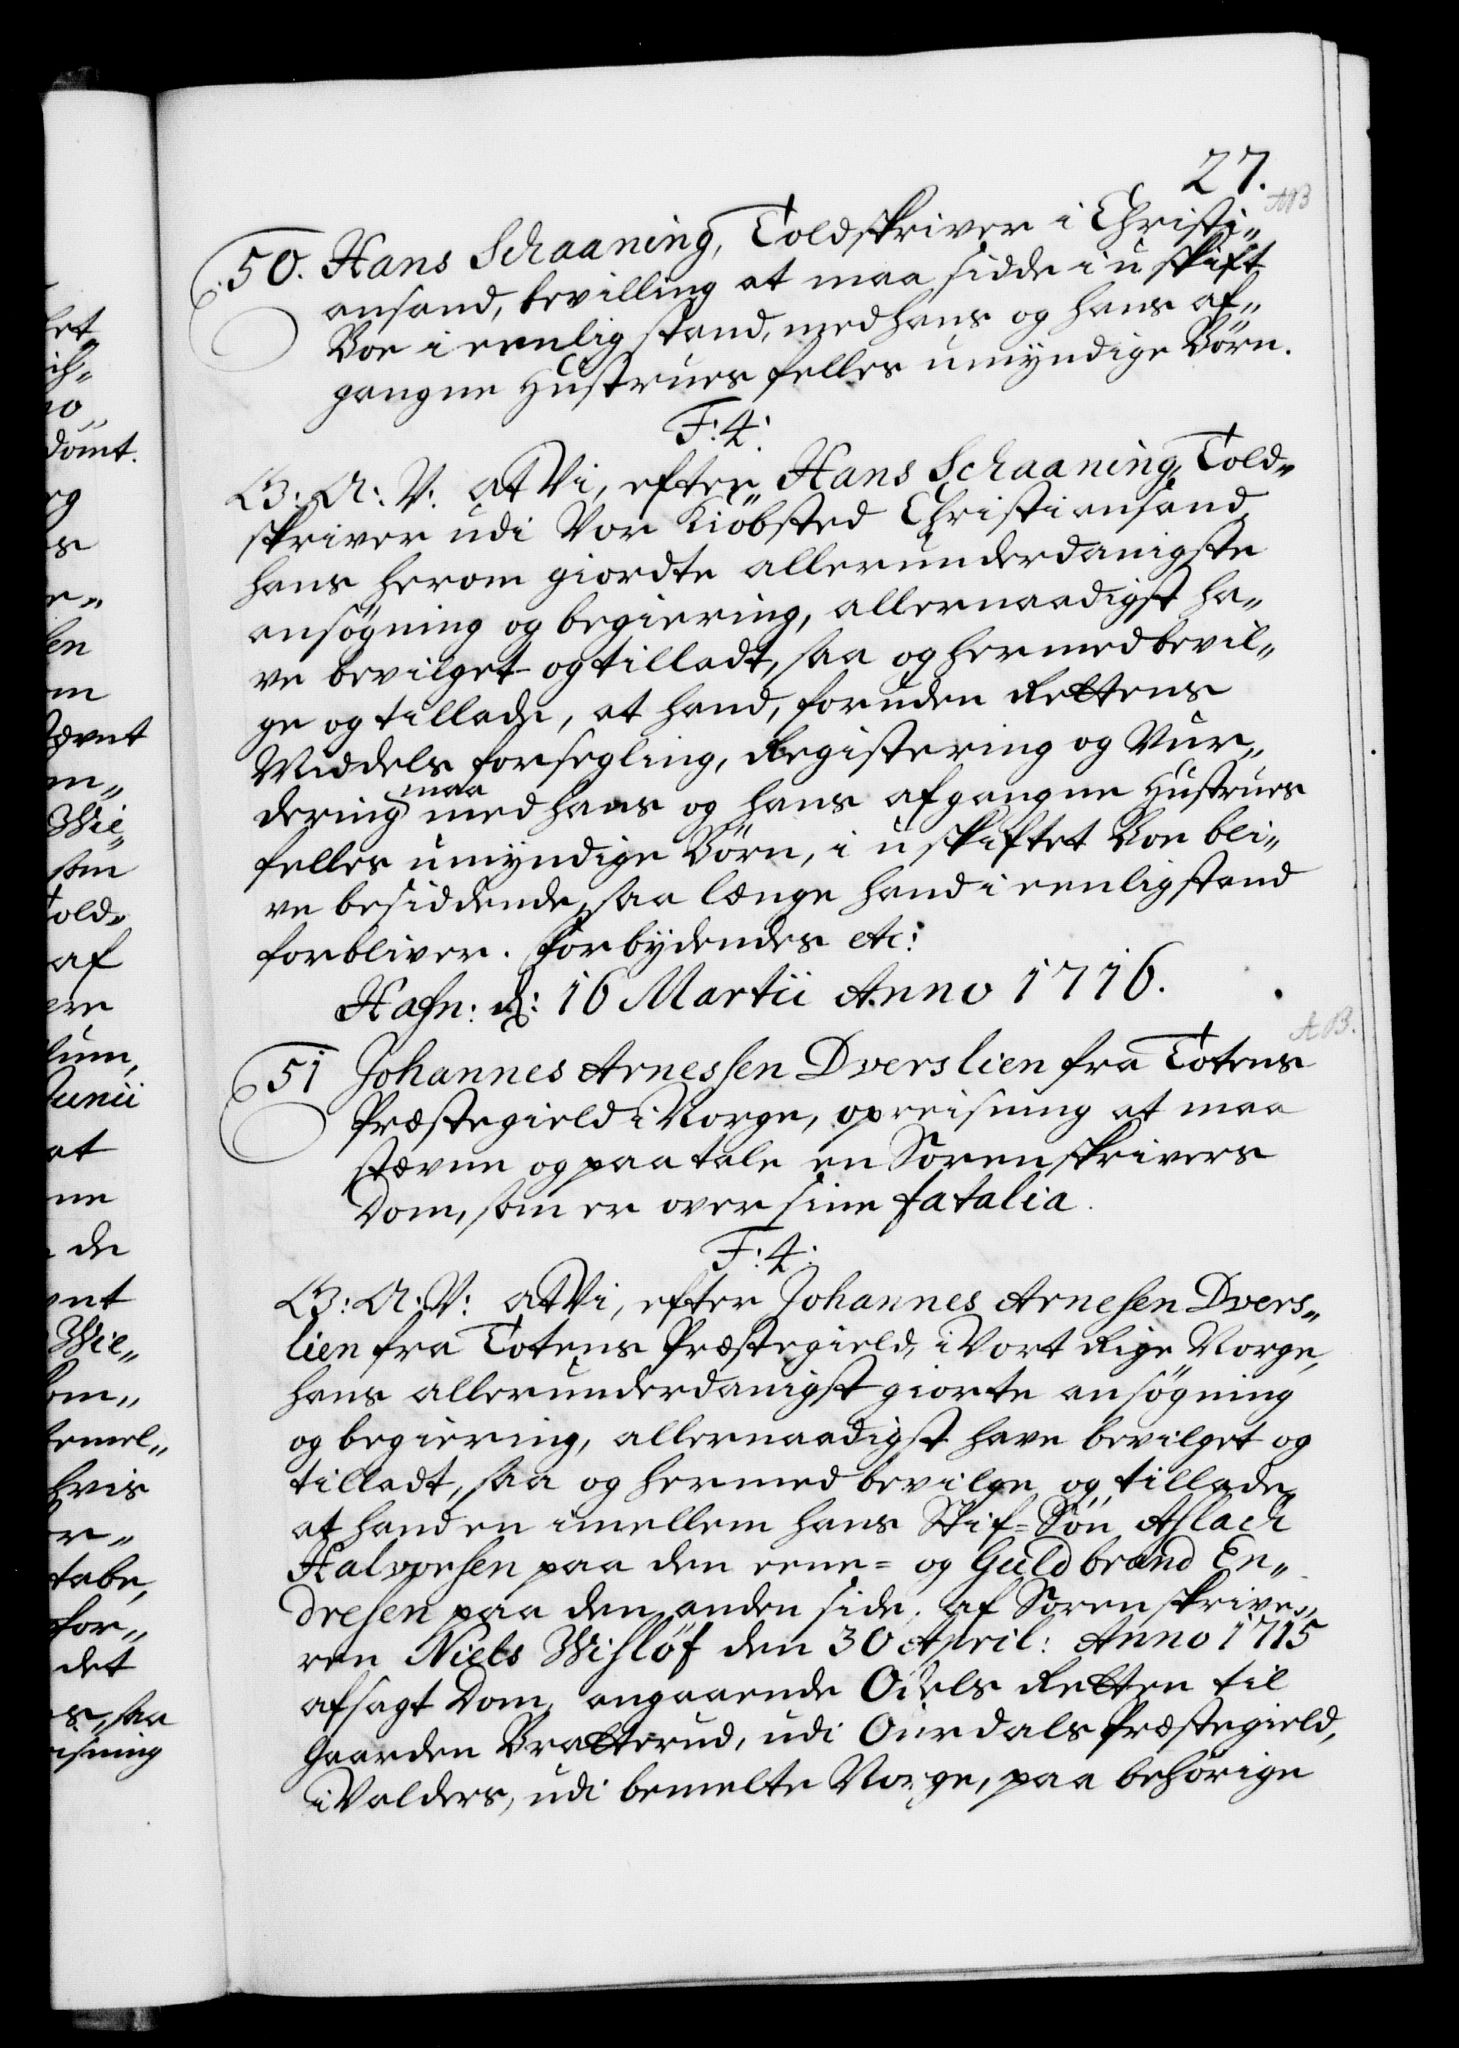 27.
AB
50. Hans Schaaning, Toldskriver i Christi„
ansand, bevilling at maa sidde i uskift
Boe i eenlig stand, med hans og hans af„
gangne Hustrues felles umyndige Börn.
F: 4:
G: A: V: at Vi, efter Hans Schaaning, Told„
skriver udi Vor Kiöbsted Christiansand,
hans herom giordte allerunderdanigste
ansögning og begiering, allernaadigst ha„
ve bevilget og tilladt, saa og hermed bevil„
ge og tillade, at hand, foruden Rettens
Middels forsegling, Registering og Vur„
dering maa med hans og hans afgangne Hustrues
felles umyndige Börn, i uskiftet Boe bli„
ve besiddende, saa længe hand i eenlig stand
forbliver. Forbydendes etc:
Hafn: d: 16 Martii Anno 1716.
AB.
51 Johannes Arnessen Dverslien fra Totens
Præstegield i Norge, opreisning at maa
stævne og paatale en Sorenskrivers
Dom, som er over sine fatalia.
F: 4:
G: A: V: at Vi, efter Johannes Arnesen Dvers„
lien fra Totens Præstegield, i Vort Rige Norge,
hans allerunderdanigst giorte ansögning
og begiering, allernaadigst have bevilget og
tilladt, saa og hermed bevilge og tillade,
at hand en imellem hans Stif=Sön Aslach
Halvorsen paa den eene= og Guldbrand En„
dresen paa den anden side, af Sorenskrive„
ren Niels Wislöf den 30 April: Anno 1715
afsagt Dom, angaaende Odels Retten til
Gaarden Bratterud, udi Ourdals Præstegield,
i Valders, udi bemelte Norge, paa behörige